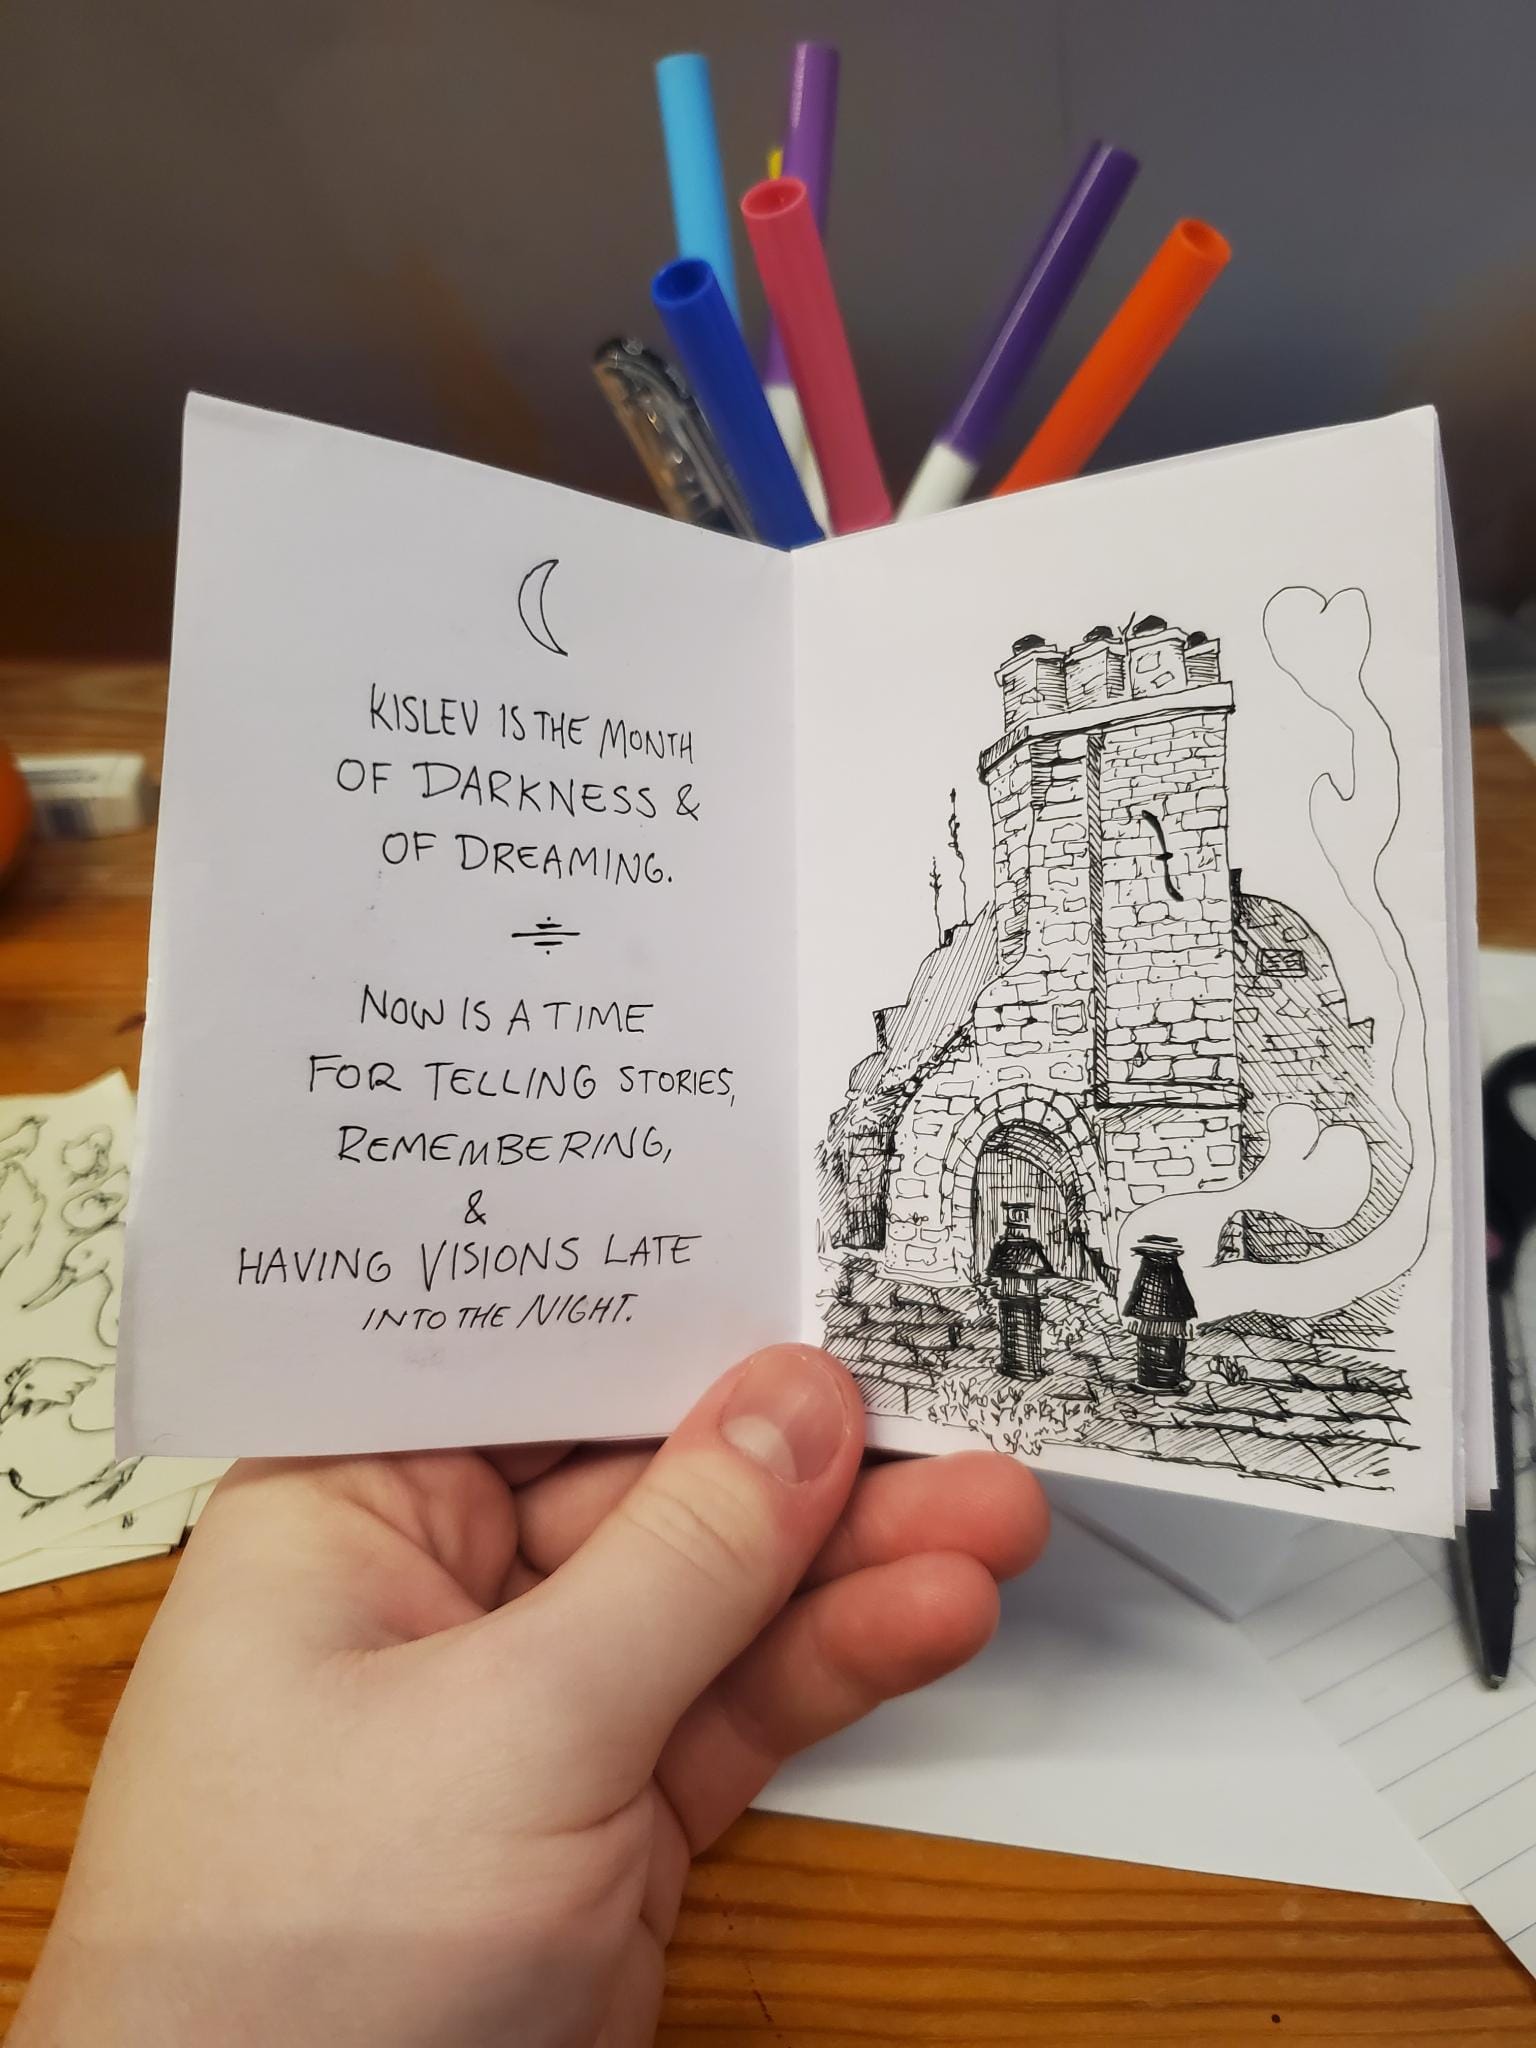 KISLEV IS THE MONTH
OF DARKNESS &
OF DREAMING.
NOW IS A TIME
FOR TELLING STORIES,
REMEMBERING,
&
HAVING VISIONS LATE
INTO THE NIGHT.